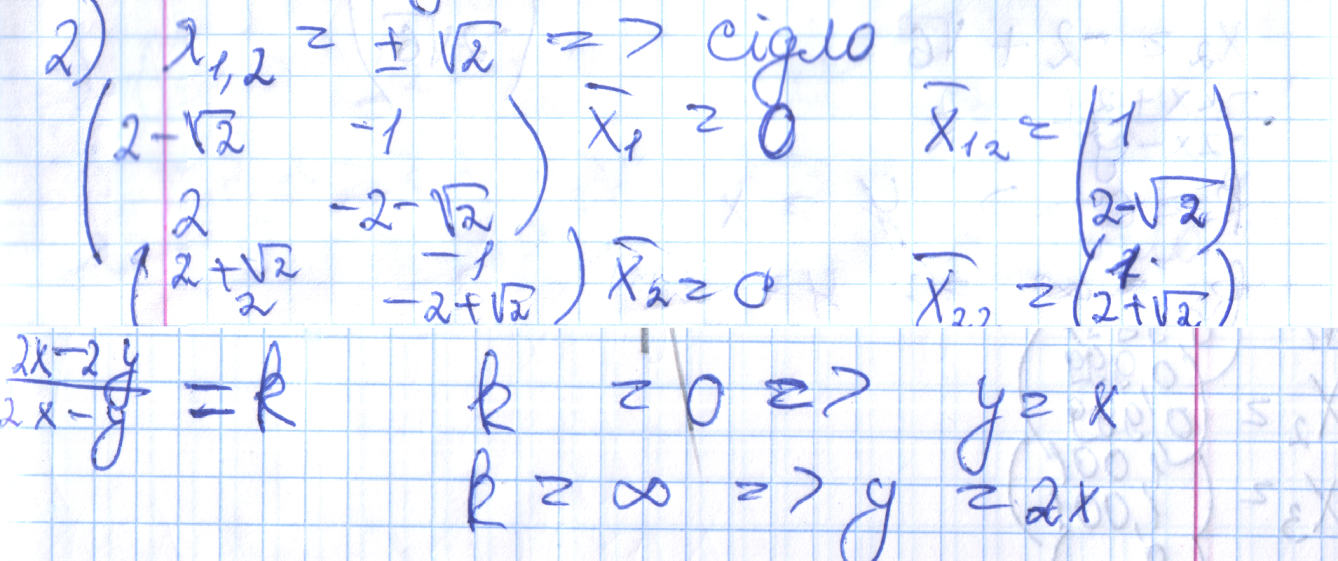 2) λ₁,₂ = ± √2 => сідло
(2-√2 -1; 2 -2-√2) x̄₁ = 0 x̄₁₂ = (1; 2-√2)
(2+√2 -1; 2 -2+√2) x̄₂ = 0 x̄₂₂ = (1; 2+√2)
(2x-2y)/(2x-y) = k k = 0 => y = x
k = ∞ => y = 2x